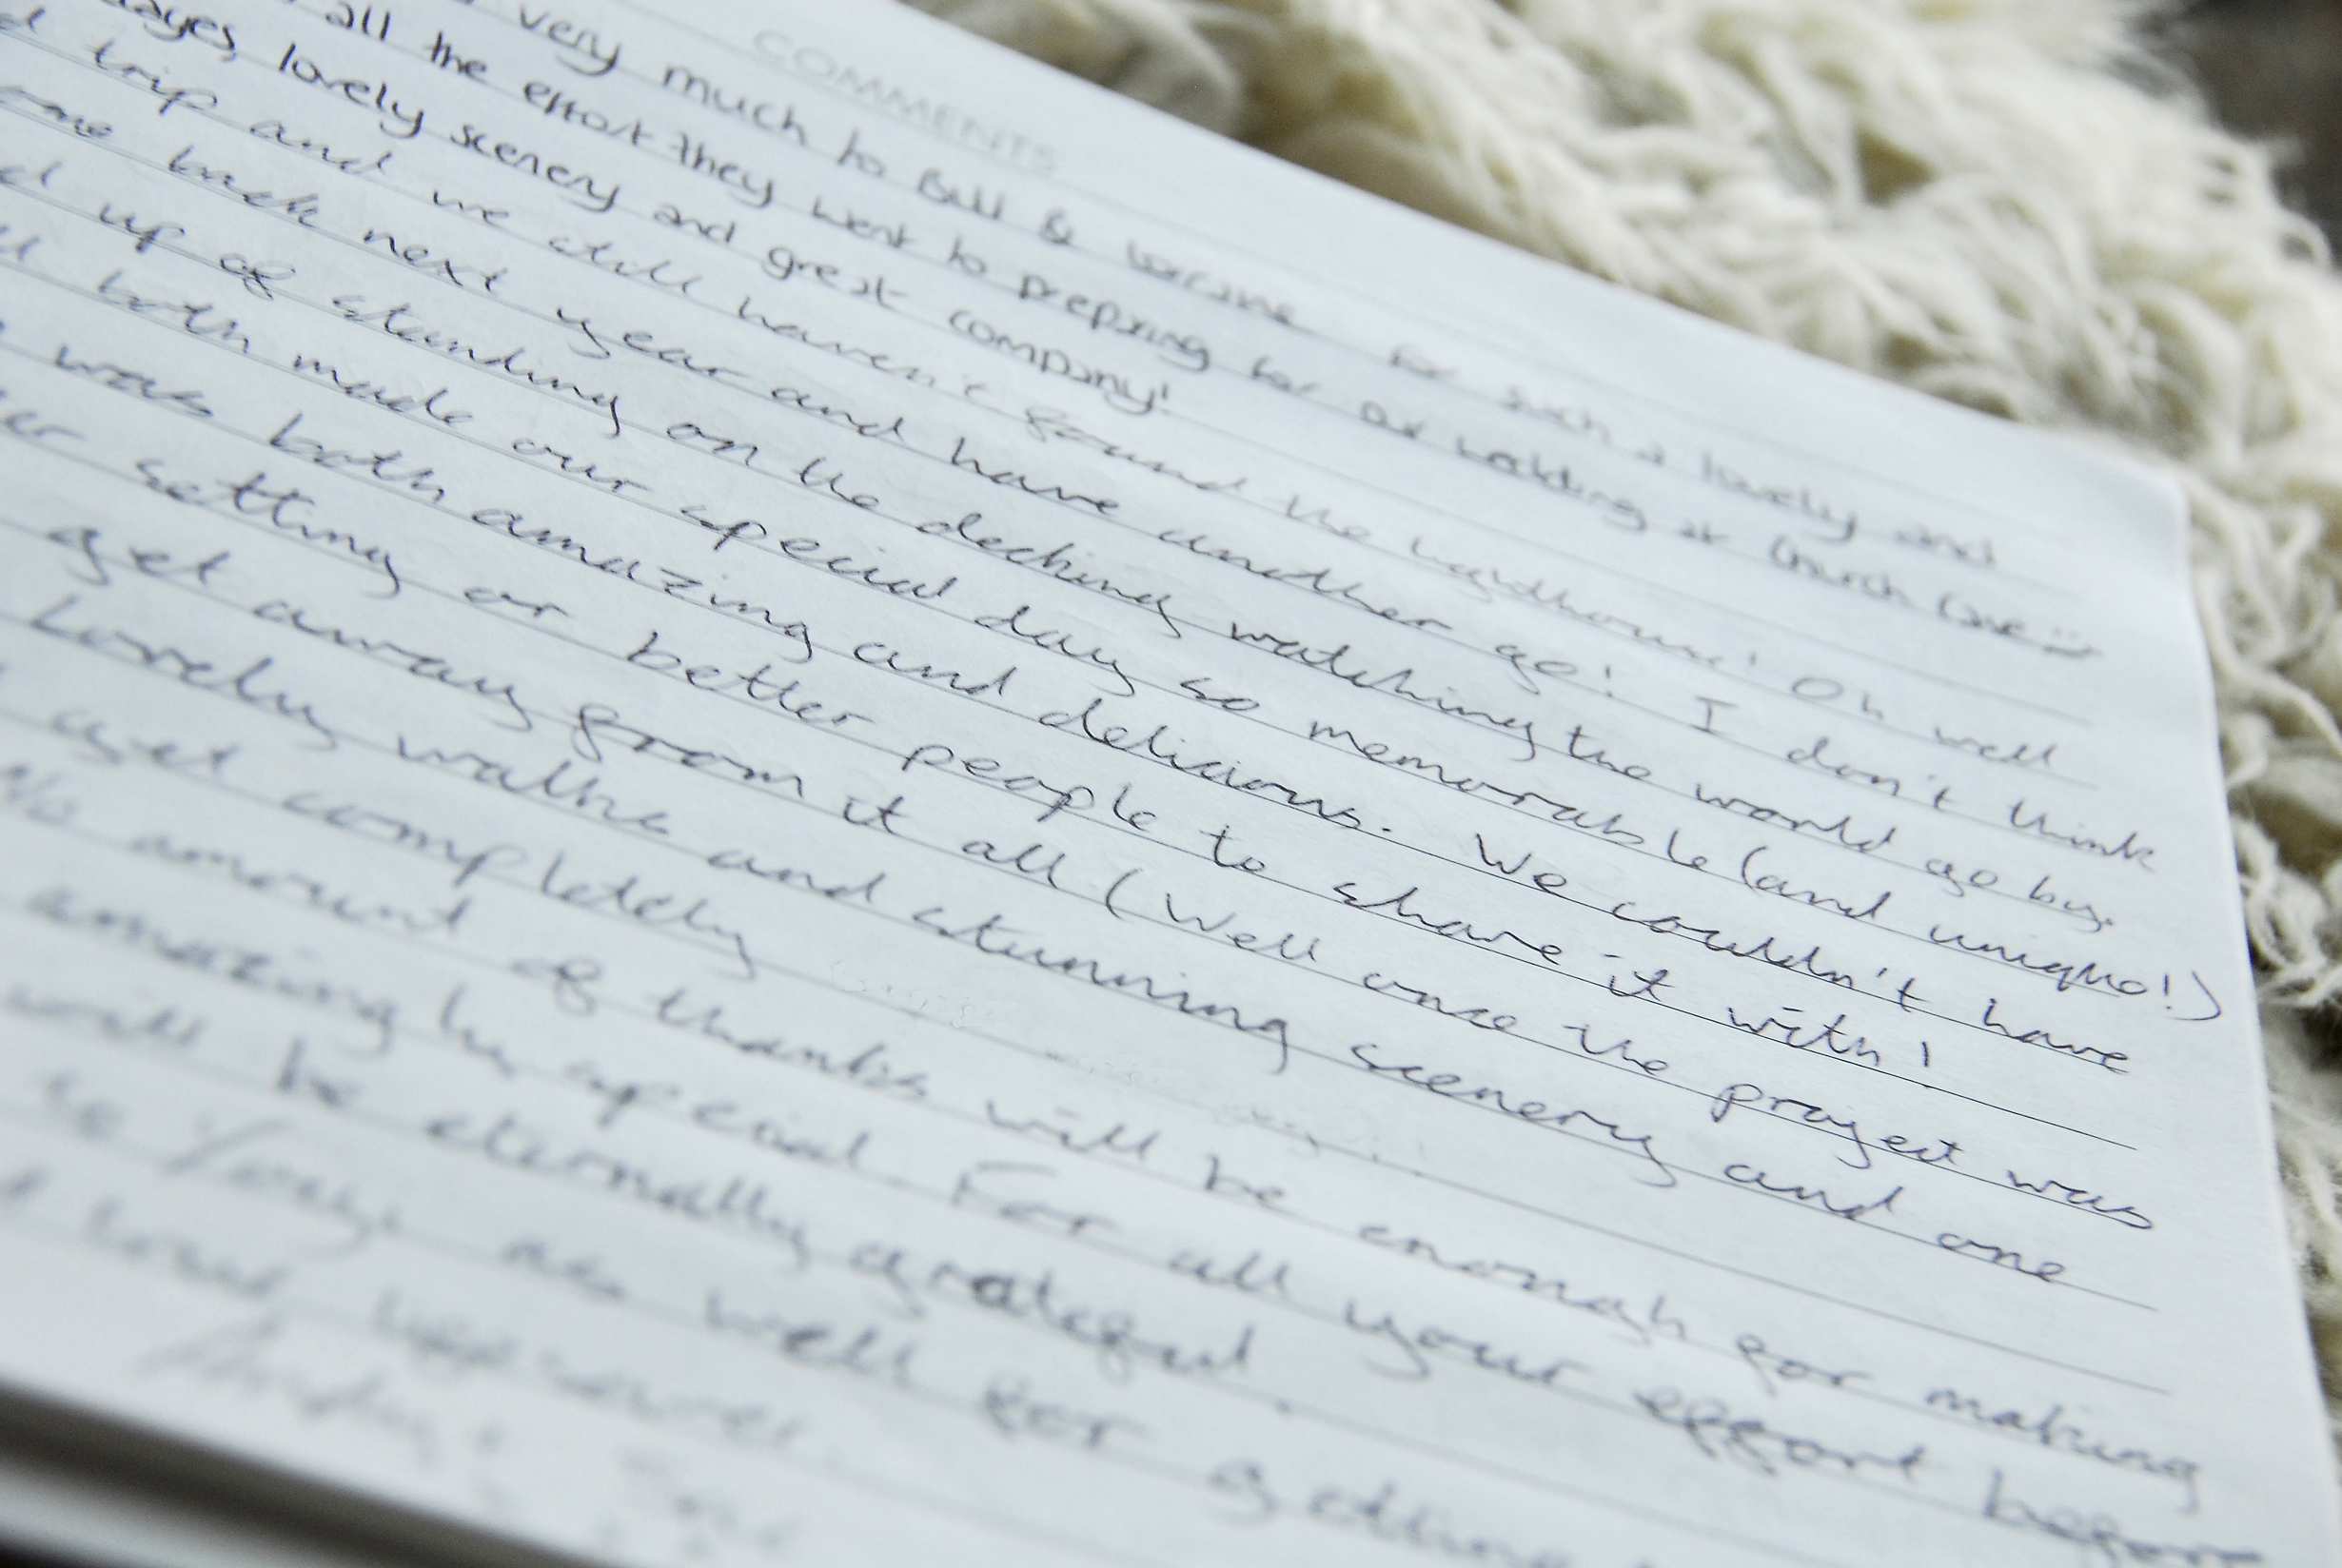 COMMENTS
very much to Bill & Lorraine for such a lovely and
all the effort they went to preparing for our wedding at Church Cove
lovely scenery and great company!
trip and we still haven't found the Oh well
back next year and have another go! I don't think
up of standing on the decking watching the world go by.
both made our special day so memorable (and unique!)
was both amazing and delicious. We couldn't have
setting or better people to share it with!
get away from it all (Well once the project was
Lovely walks and stunning scenery and one
get completely
No amount of thanks will be enough for making
amazing special. For all your effort before
will be eternally grateful.
as well for getting